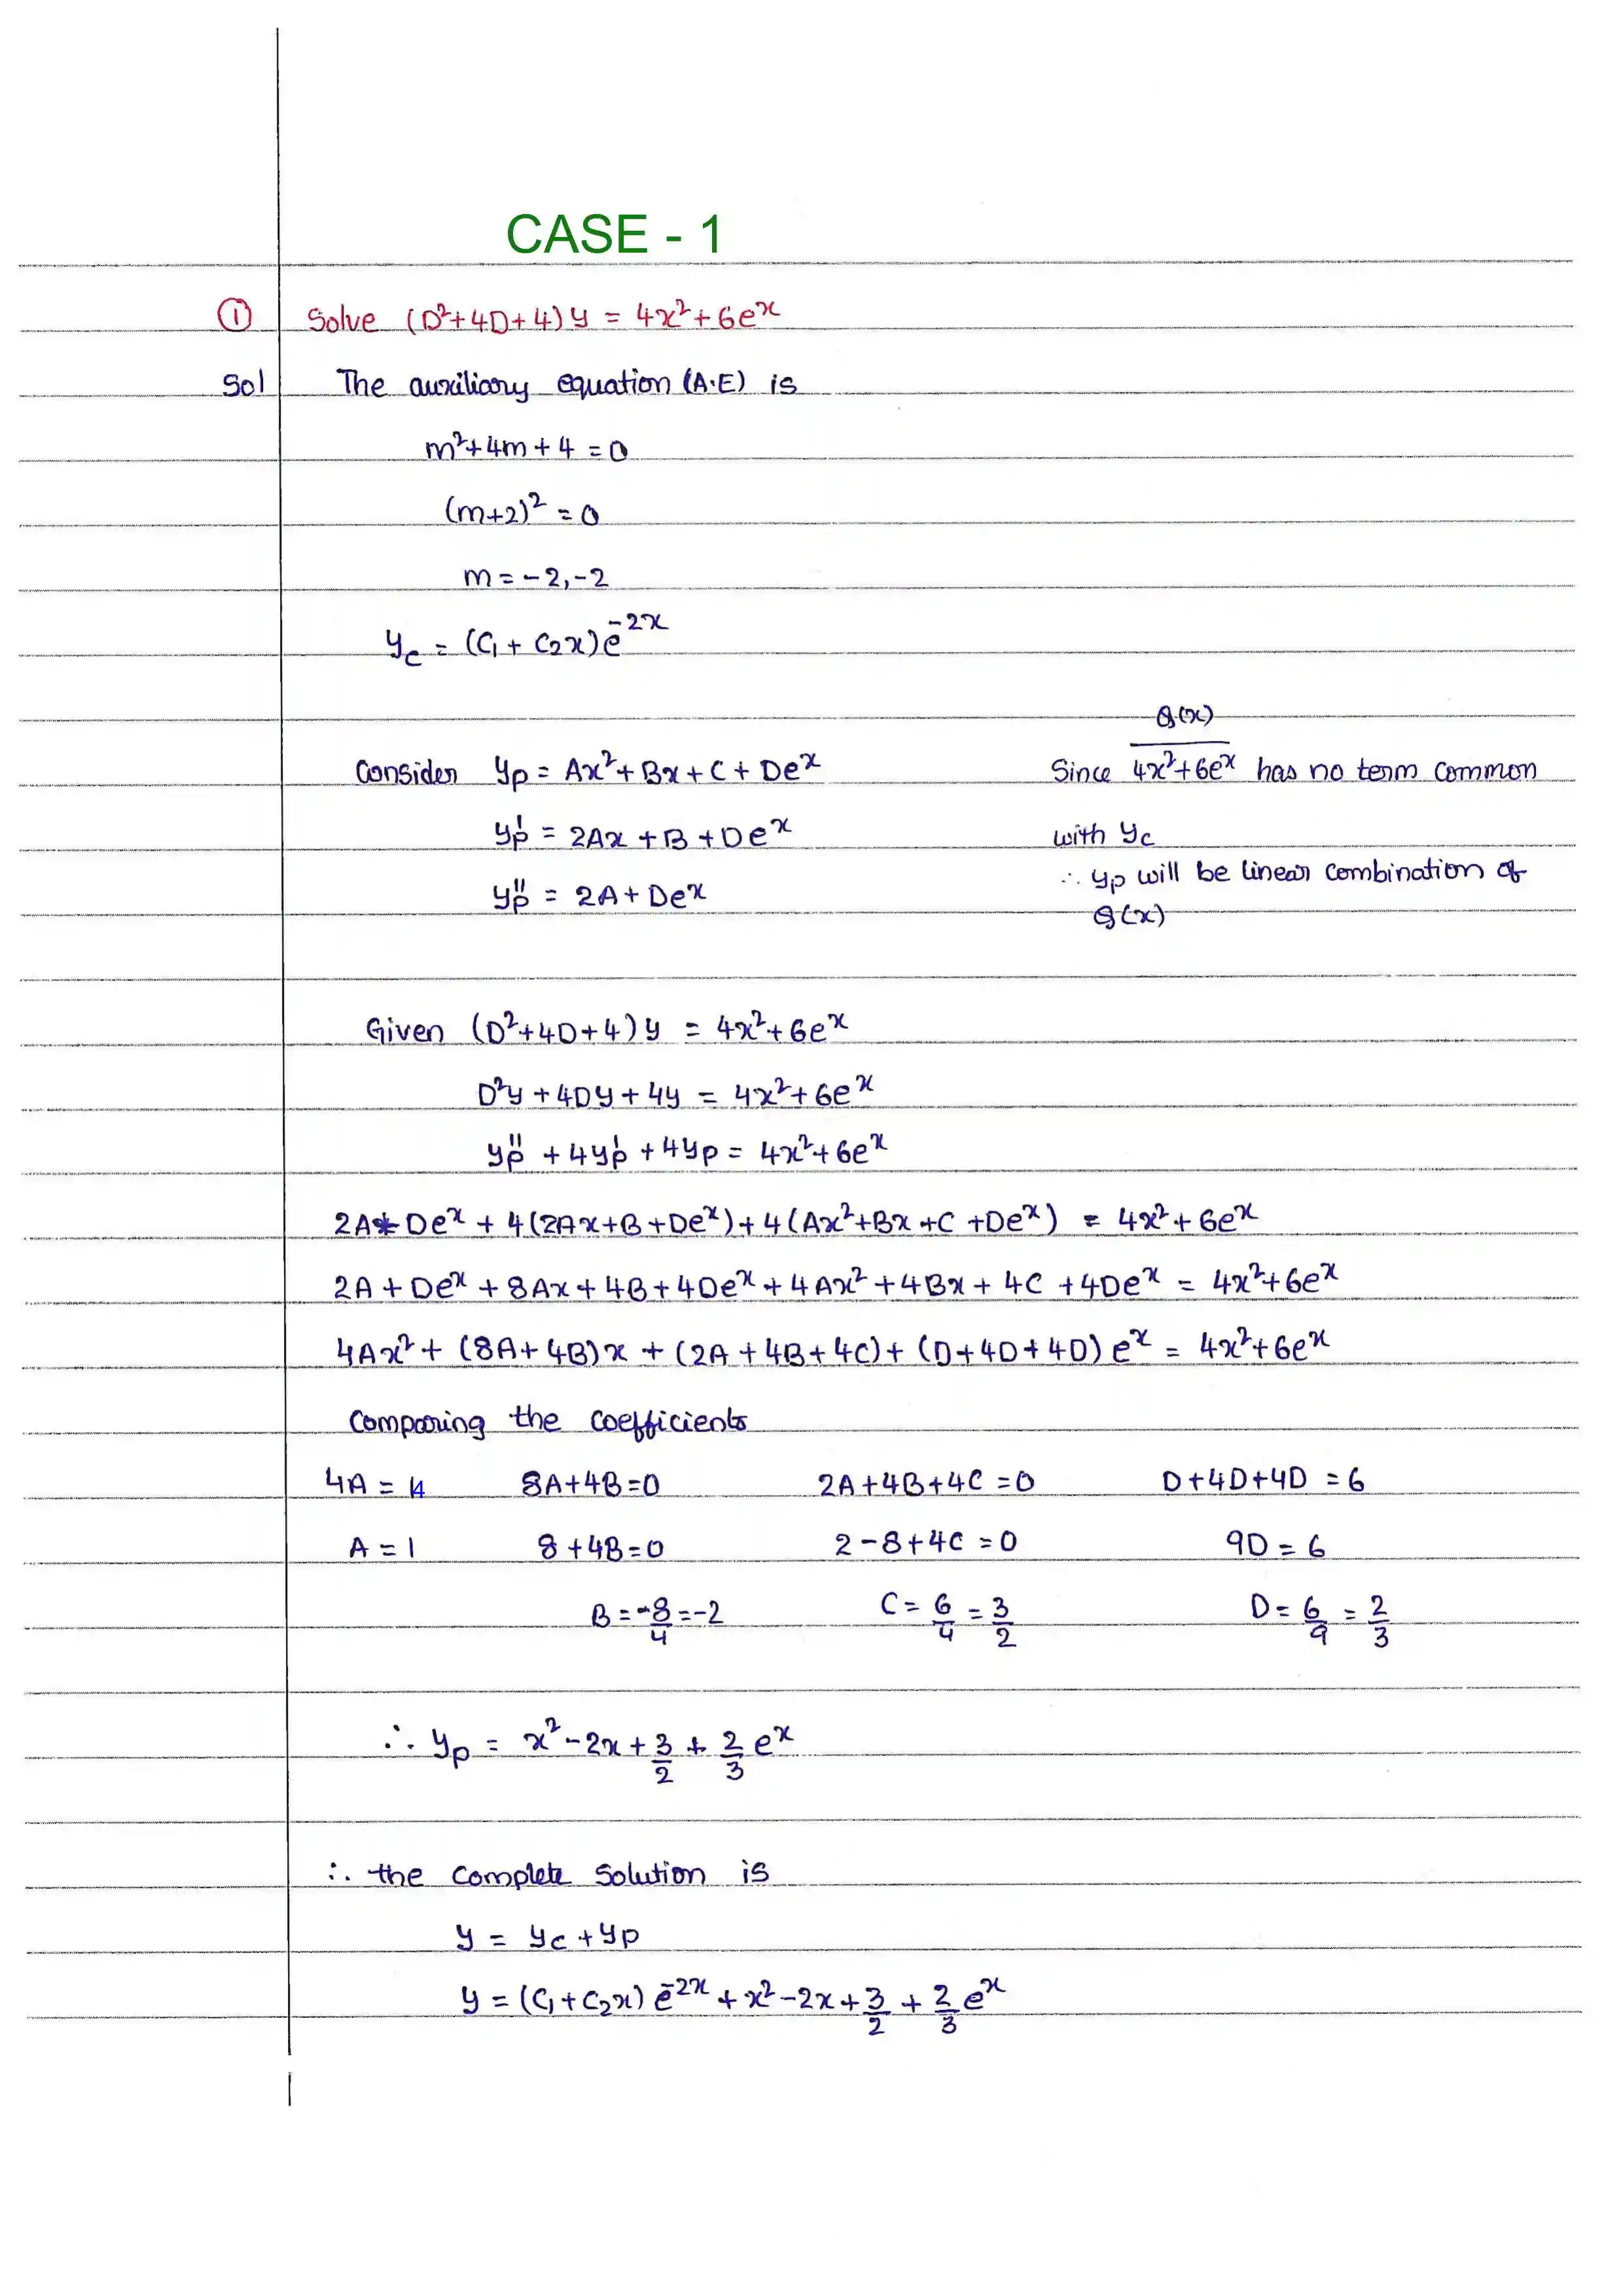 CASE - 1
① Solve (D²+4D+4)y = 4x²+6eˣ
Sol The auxiliary equation (A.E) is
m²+4m+4 = 0
(m+2)² = 0
m = -2, -2
y_c = (C₁ + C₂x)e⁻²ˣ
Q(x)
Consider yₚ = Ax²+Bx+C+Deˣ Since 4x²+6eˣ has no term common
yₚ' = 2Ax+B+Deˣ with y_c
∴ yₚ will be linear combination of
yₚ'' = 2A+Deˣ
Q(x)
Given (D²+4D+4)y = 4x²+6eˣ
D²y+4Dy+4y = 4x²+6eˣ
yₚ'' + 4yₚ' + 4yₚ = 4x²+6eˣ
2A+Deˣ + 4(2Ax+B+Deˣ)+4(Ax²+Bx+C+Deˣ) = 4x²+6eˣ
2A+Deˣ+8Ax+4B+4Deˣ+4Ax²+4Bx+4C+4Deˣ = 4x²+6eˣ
4Ax²+(8A+4B)x+(2A+4B+4C)+(D+4D+4D)eˣ = 4x²+6eˣ
Comparing the coefficients
4A = 4 8A+4B=0 2A+4B+4C=0 D+4D+4D=6
A = 1 8+4B=0 2-8+4C=0 9D=6
B = -8/4 = -2 C = 6/4 = 3/2 D = 6/9 = 2/3
∴ yₚ = x²-2x+3/2+2/3 eˣ
∴ the complete solution is
y = y_c + yₚ
y = (C₁+C₂x)e⁻²ˣ+x²-2x+3/2+2/3 eˣ